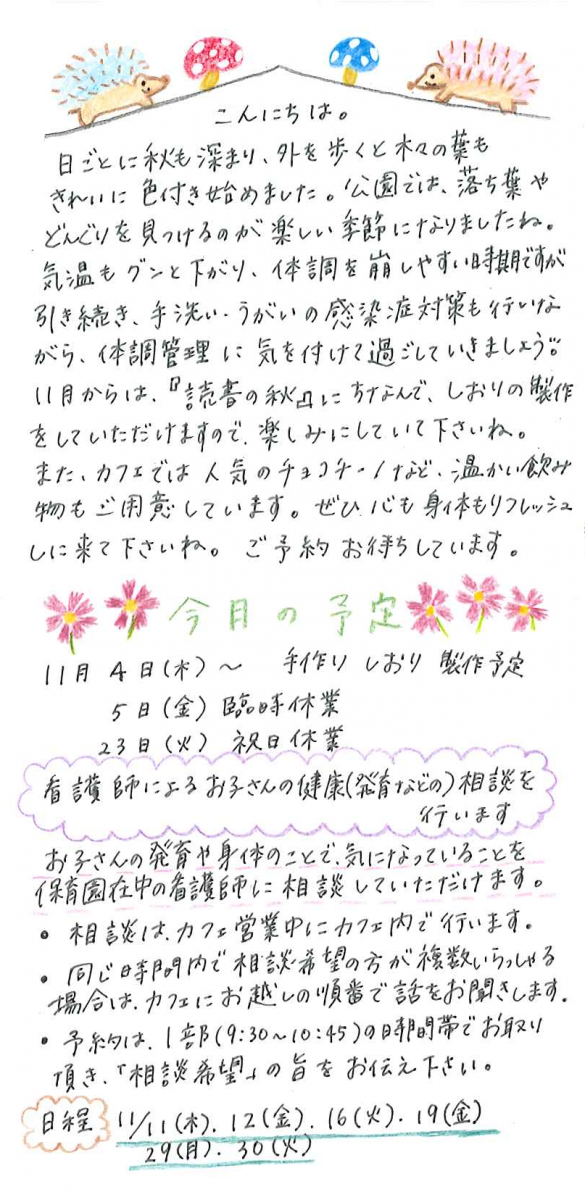 こんにちは。
日ごとに秋も深まり、外を歩くと木々の葉も
きれいに色付き始めました。公園では、落ち葉や
どんぐりを見つけるのが楽しい季節になりましたね。
気温もグンと下がり、体調を崩しやすい時期ですが
引き続き、手洗い・うがいの感染症対策も行いな
がら、体調管理に気を付けて過ごしていきましょう。
11月からは、『読書の秋』にちなんで、しおりの製作
をしていただけますので、楽しみにしていて下さいね。
また、カフェでは人気のチョコチーノなど、温かい飲み
物もご用意しています。ぜひ、心も身体もリフレッシュ
しに来て下さいね。ご予約お待ちしています。
今月の予定
11月 4日(木)～ 手作りしおり製作予定
5日(金) 臨時休業
23日(火) 祝日休業
看護師によるお子さんの健康(発育などの)相談を
行います
お子さんの発育や身体のことで、気になっていることを
保育園在中の看護師に相談していただけます。
・相談は、カフェ営業中にカフェ内で行います。
・同じ時間内で相談希望の方が複数いらっしゃる
場合は、カフェにお越しの順番で話をお聞きします。
・予約は、1部(9:30～10:45)の時間帯でお取り
頂き、「相談希望」の旨をお伝え下さい。
日程 11/11(木)、12(金)、16(火)、19(金)
29(月)、30(火)